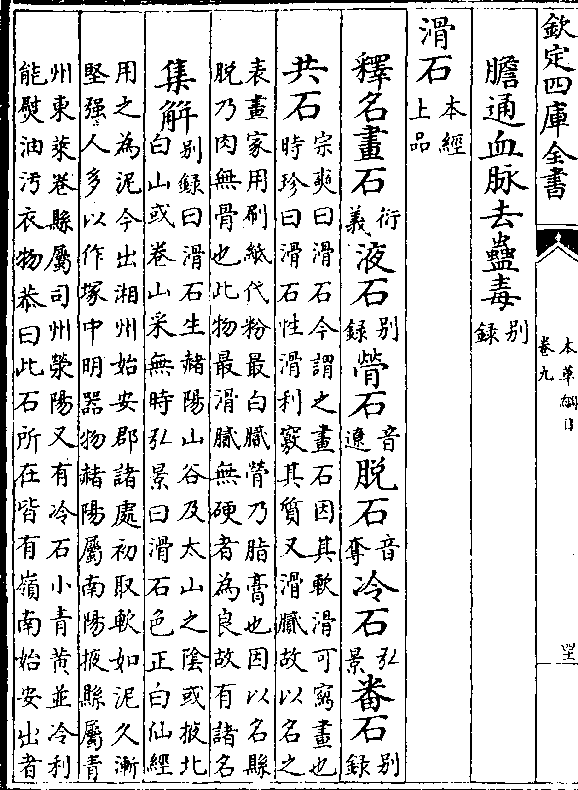 欽定四庫全書
本草綱目
卷九
膽通血脉去蠱毒别
錄
滑石本經
上品
釋名畫石衍
義液石别
錄膋石音
遼脱石音
奪冷石弘
景番石别
錄
共石宗奭曰滑石今謂之畫石因其軟滑可寫畫也
時珍曰滑石性滑利竅其質又滑膩故以名之
表畫家用刷紙代粉最白膩膋乃脂膏也因以名縣
脱乃肉無骨也此物最滑膩無硬者為良故有諸名
集解别録曰滑石生赭陽山谷及太山之隂或掖北
白山或卷山采無時弘景曰滑石色正白仙經
用之為泥今出湘州始安郡諸處初取軟如泥久漸
堅强人多以作塚中明器物赭陽屬南陽掖縣屬青
州東萊卷縣屬司州滎陽又有冷石小青黄並冷利
能熨油汚衣物恭曰此石所在皆有嶺南始安出者